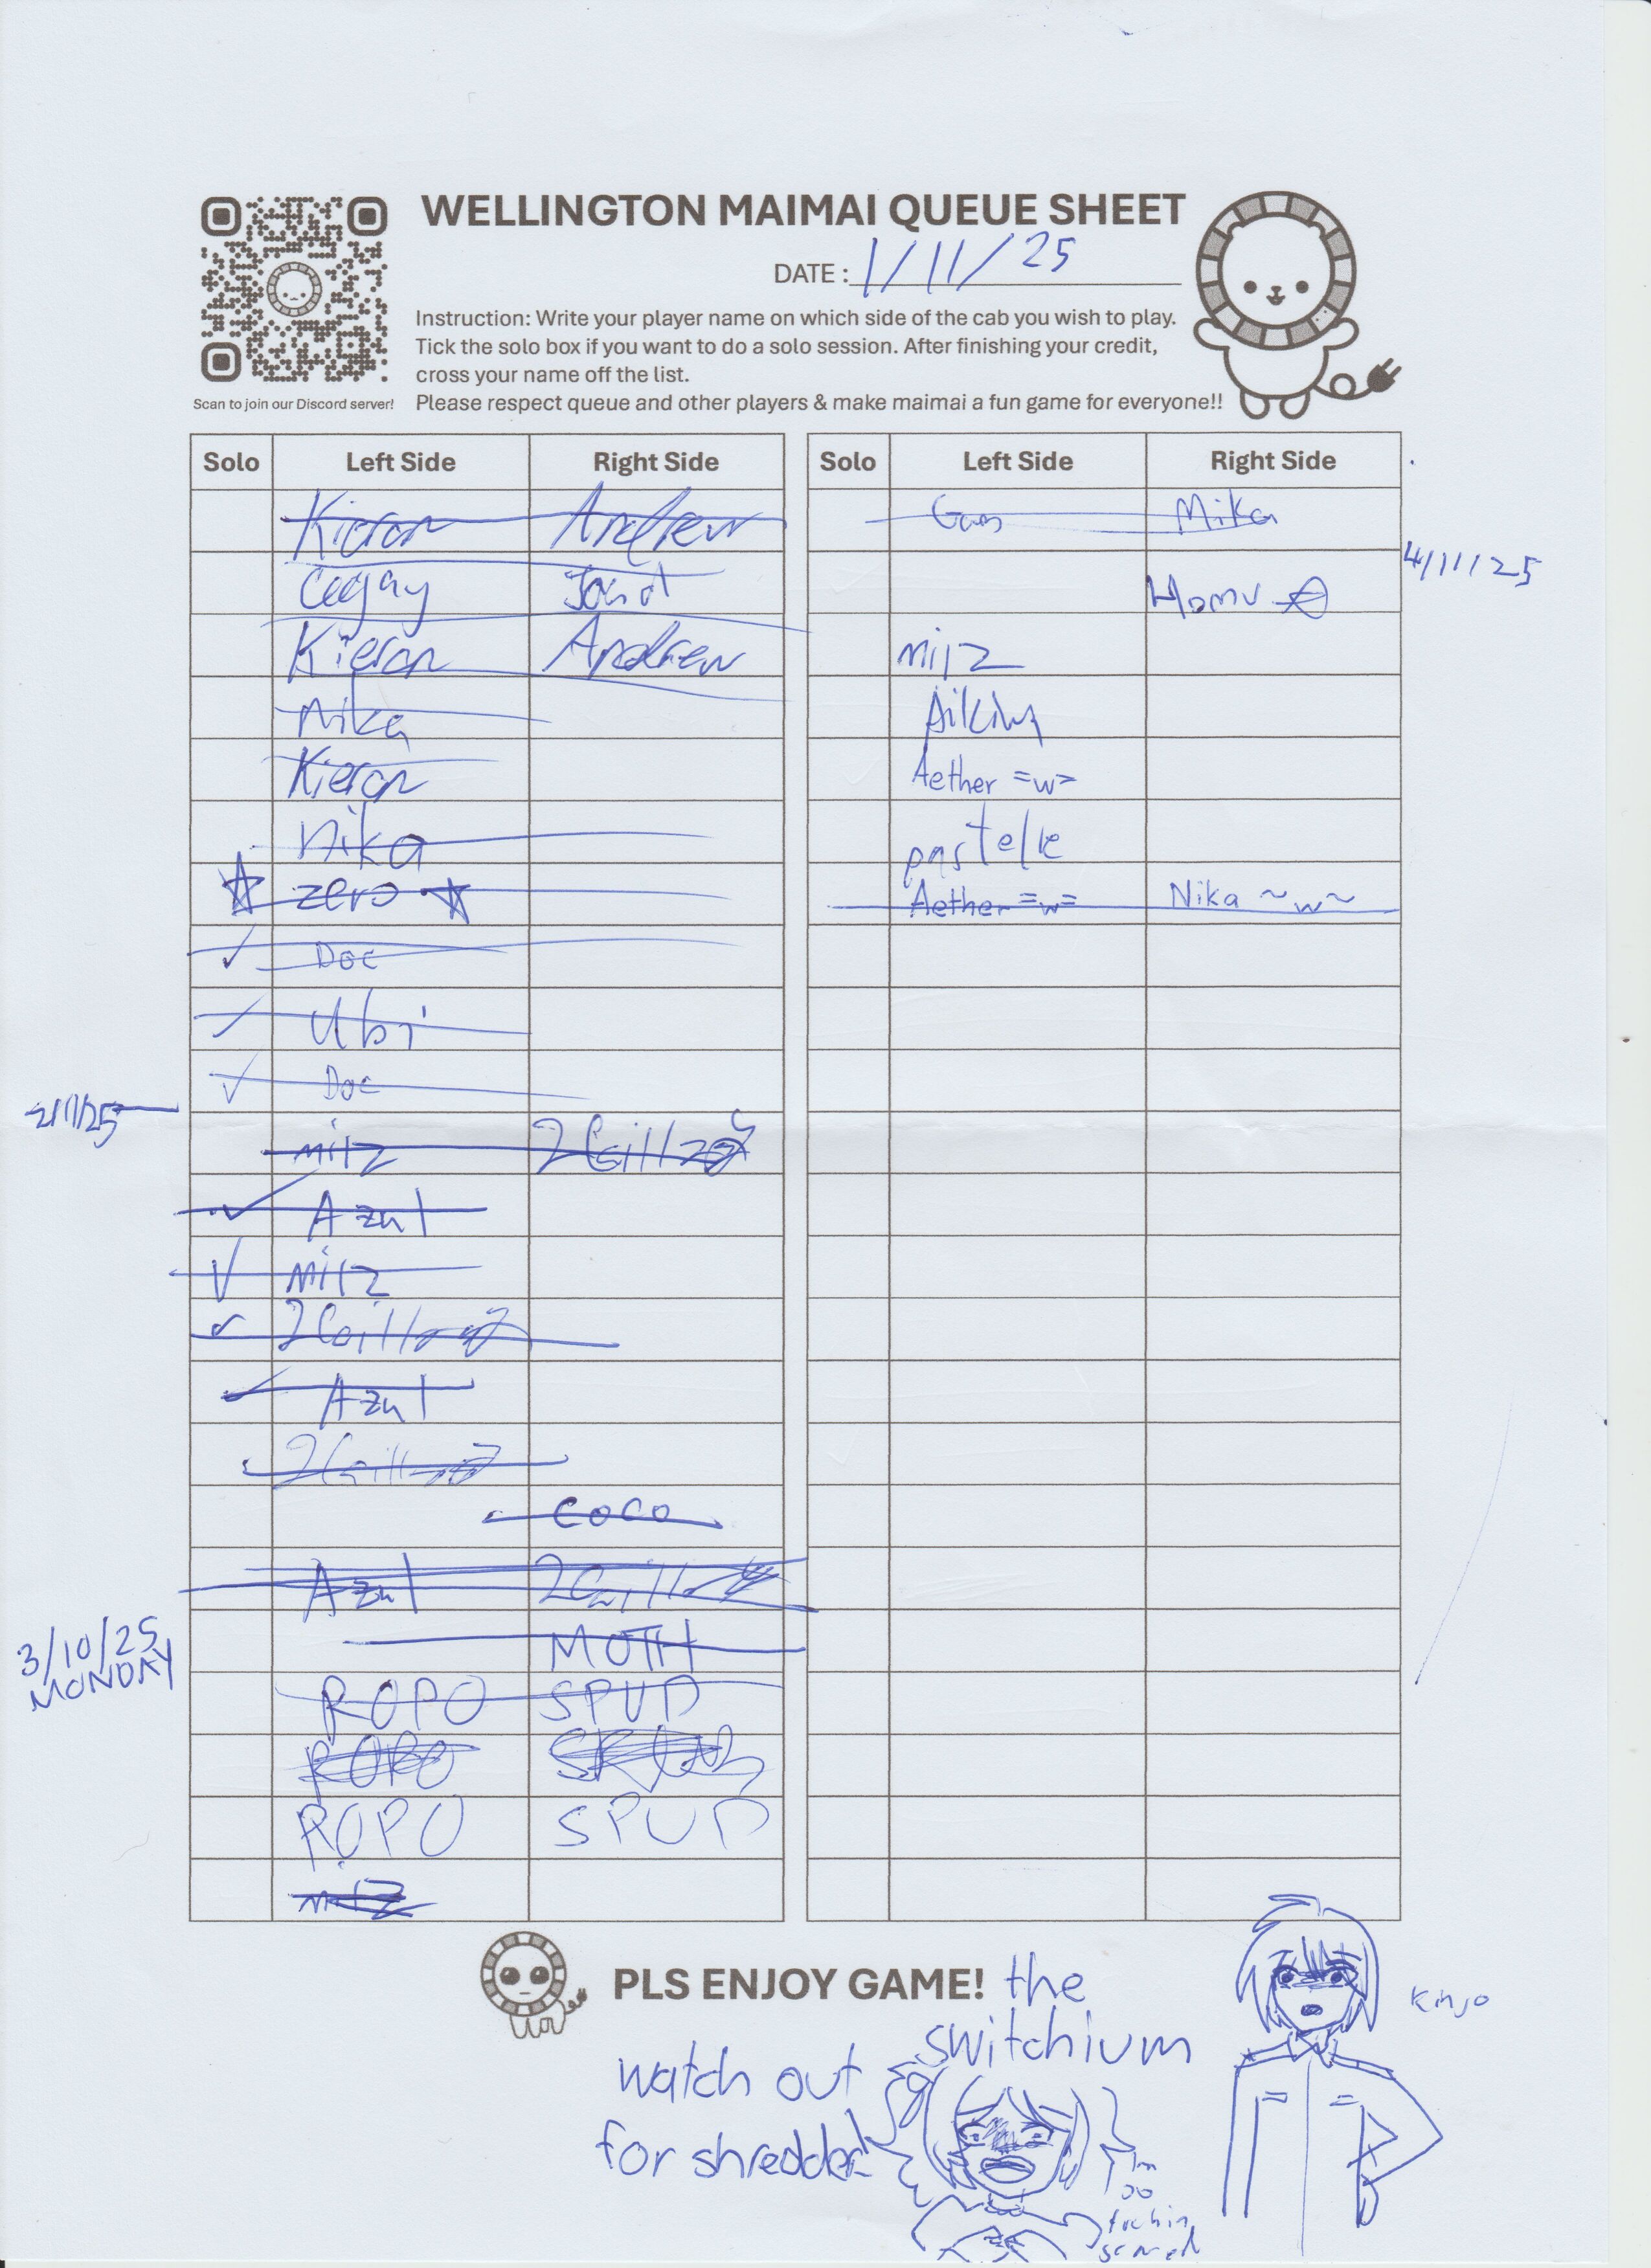 WELLINGTON MAIMAI QUEUE SHEET
DATE: 1/11/25
Instruction: Write your player name on which side of the cab you wish to play.
Tick the solo box if you want to do a solo session. After finishing your credit,
cross your name off the list.
Please respect queue and other players & make maimai a fun game for everyone!!
Scan to join our Discord server!
Solo Left Side Right Side
Kieran Andrew
Kieran Andrew
Nika
Kieran
nika
zero
✓ Doc
✓ Ubi
✓ Doc
2/11/25
milz
✓ Azul
✓ milz
✓
✓ Azul
coco
Azul
MOTH
3/10/25
MONDAY
ROPO SPUD
ROPO
ROPO SPUD
milz
Solo Left Side Right Side
Mika
4/11/25
Homu
milz
Aether =w=
pastelle
Aether =w= Nika ~w~
PLS ENJOY GAME! the
switchium
watch out
for shredder
Kinjo
I'm
so
fuckin
scared